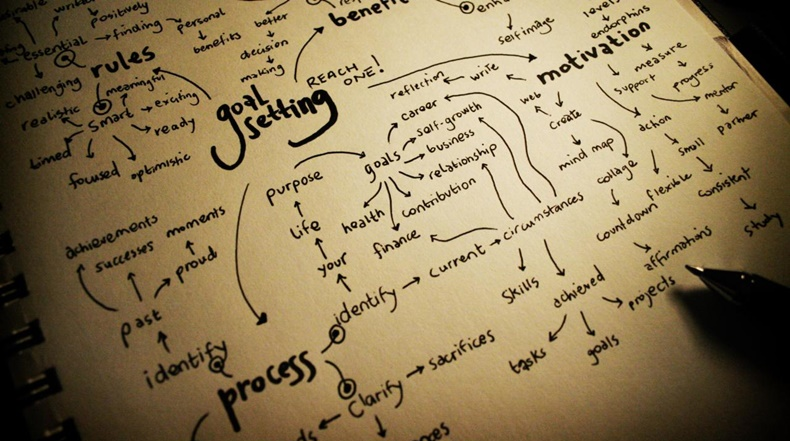 positively
essential
finding
personal
benefits
challenging
rules
realistic
meaningful
smart
exciting
ready
timed
focused
optimistic
better
decision
making
REACH
ONE!
goal
setting
self image
levels
endorphins
motivation
measure
progress
support
mentor
partner
reflection
write
web
create
mind map
collage
countdown
action
small
flexible
consistent
study
affirmations
career
self-growth
goals
business
relationship
contribution
health
finance
purpose
life
your
identify
current
circumstances
skills
achieved
projects
tasks
goals
achievements
successes
moments
proud
past
identify
process
Clarify
sacrifices